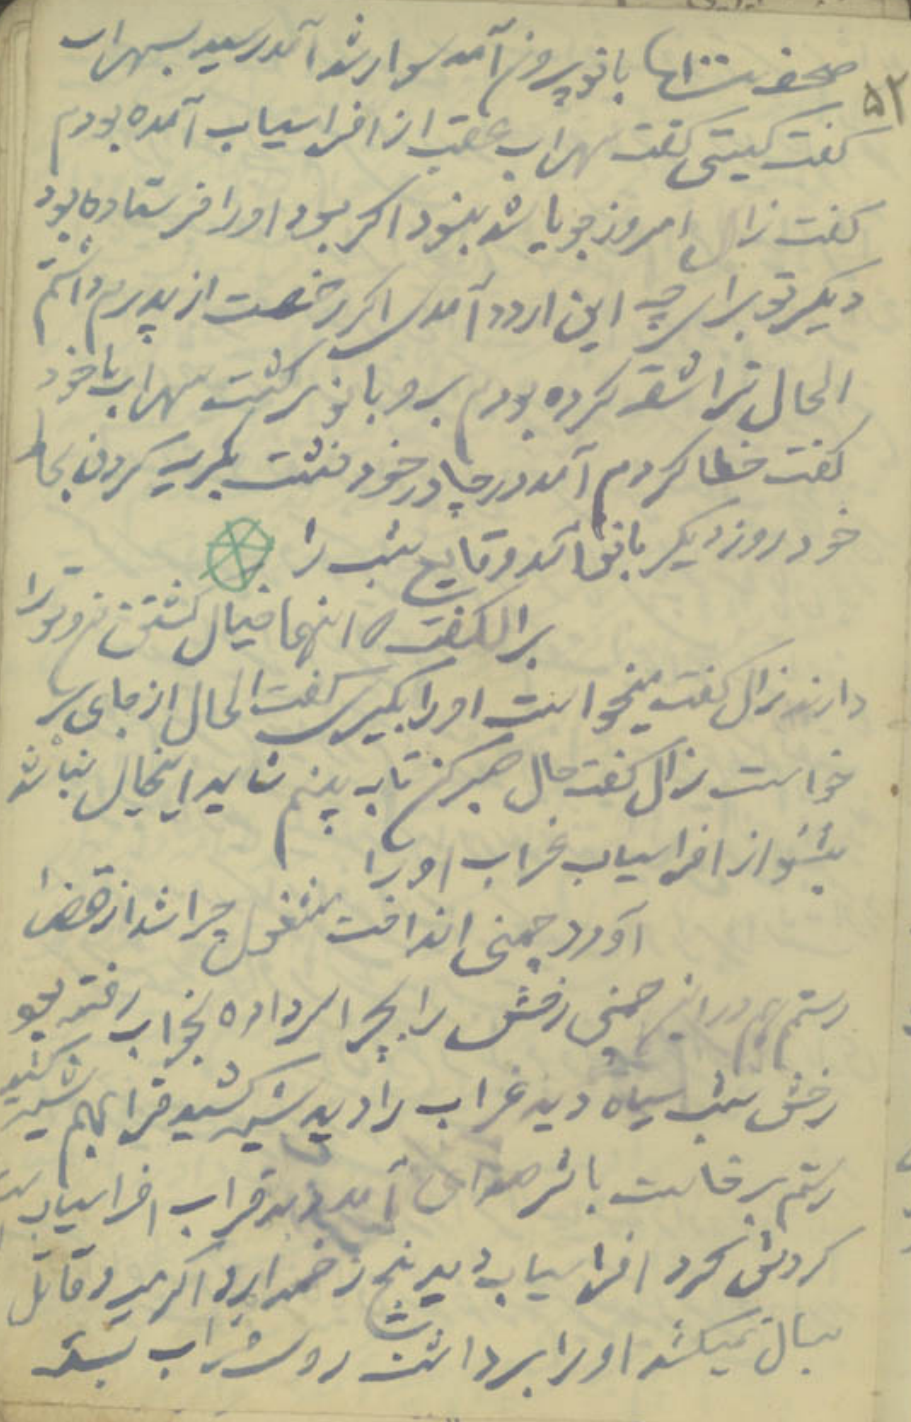 ۵۲
صحف تنها بانو بیرون آمد سوار شد آمد رسید بسهراب
گفت کیستی گفت سهراب عقب از افراسیاب آمده بودم
گفت زال امروز جویا شد بنود اگر بود او را فرستاده بود
دیگر تو برای چه این اردو آمدی اگر رخصت از پدرم داشتم
الحال ترا شقه کرده بودم برو بانو برگشت سهراب با خود
گفت خطا کردم آمد در چادر خود نشست بگریه کردن بحال
خود روز دیگر بانو آمد وقایع شب را
بزال گفت که اینها خیال کشتن من و تو را
دارند زال گفت میخواست او را بگیری گفت الحال از جای بر
خواست زال گفت حال صبر کن تا به بینم شاید اینخیال نباشد
بشنو از افراسیاب غراب او را
آورد چمنی انداخت مشغول چرا شد از قضا
رستم هم در این چمنی رخش را بچرا سر داده بخواب رفته بود
رخش شب سیاه دید غراب را دید شیهه کشید قراب هم شیهه کشید
رستم برخاست باثر صدای آمد دید قراب افراسیاب
کردش کرد افراسیاب دید پنج زخم دارد اگر میرد قاتل
سال نمیکشد او را برداشت روی غراب بست